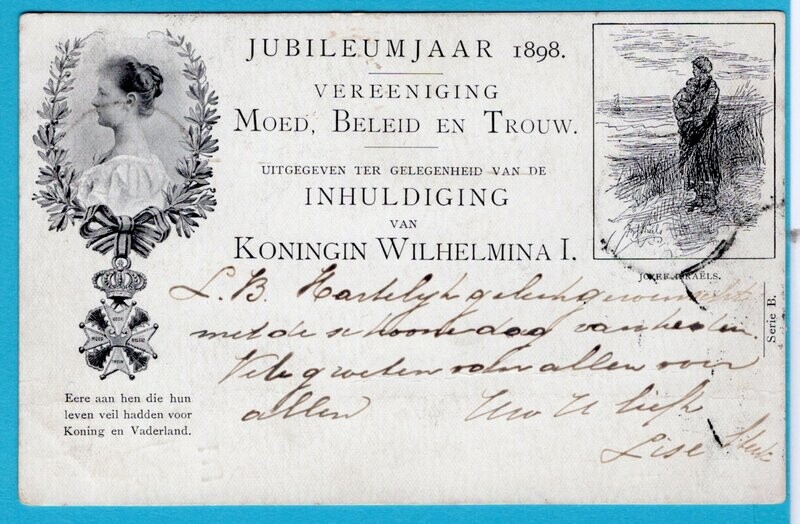 JUBILEUMJAAR 1898.
VEREENIGING
MOED, BELEID EN TROUW.
UITGEGEVEN TER GELEGENHEID VAN DE
INHULDIGING
VAN
KONINGIN WILHELMINA I.
JOZEF ISRAËLS.
Serie B.
VOOR
MOED
BELEID
TROUW
Eere aan hen die hun
leven veil hadden voor
Koning en Vaderland.
L. B. Hartelijk gelukgewenscht
met de schoone dag van heden.
Vele groeten van allen voor
allen Uw U liefh
Lise